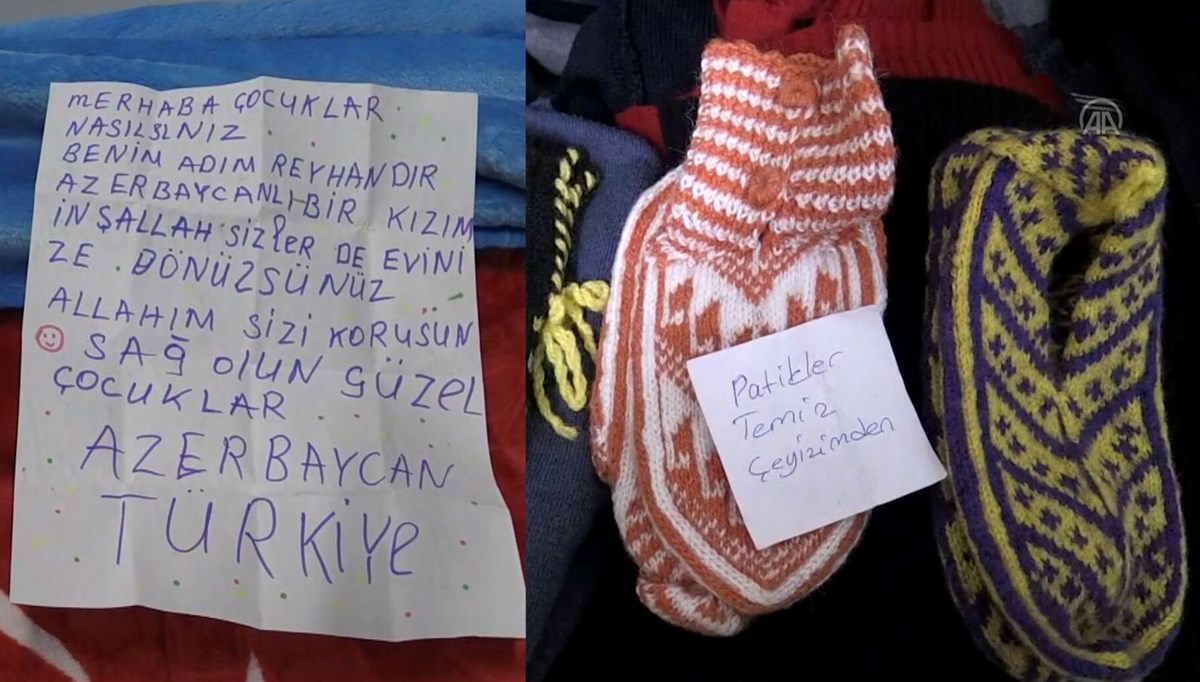 MERHABA ÇOCUKLAR
NASILSINIZ
BENİM ADIM REYHANDIR
AZERBAYCANLI BİR KIZIM
İNŞALLAH SİZLER DE EVİNİ
ZE DÖNÜZSÜNÜZ
ALLAHIM SİZİ KORUSUN
SAĞ OLUN GÜZEL
ÇOCUKLAR
AZERBAYCAN
TÜRKİYE
Patikler
Temiz
Çeyizimden
AA